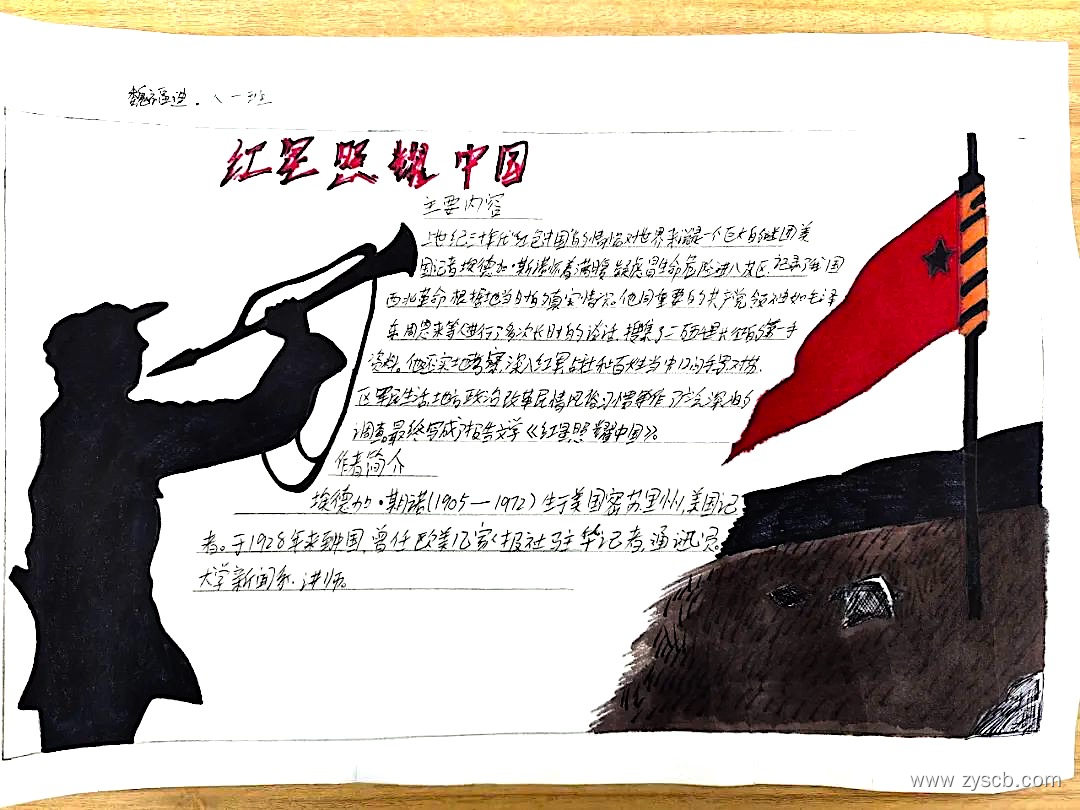 八一班
红星照耀中国
主要内容
上世纪三十年代红色中国的情况对世界来说是一个巨大的谜团美
国记者埃德加·斯诺冒生命危险进入苏区记录了我国
西北革命根据地当时的真实情况。他同重要的共产党领袖如毛泽
东周恩来等人进行了多次长时的谈话,搜集了二万五千里长征的第一手
资料。他还实地考察,深入红军战士和百姓当中
区军民生活地方政治改革民情风俗习惯等作了广泛深入的
调查。最终写成了报告文学《红星照耀中国》。
作者简介
埃德加·斯诺(1905—1972)生于美国密苏里州,美国记
者。于1928年来到中国,曾任欧美几家报社驻华记者,通讯员。
大学新闻系讲师。
www.zyscb.com